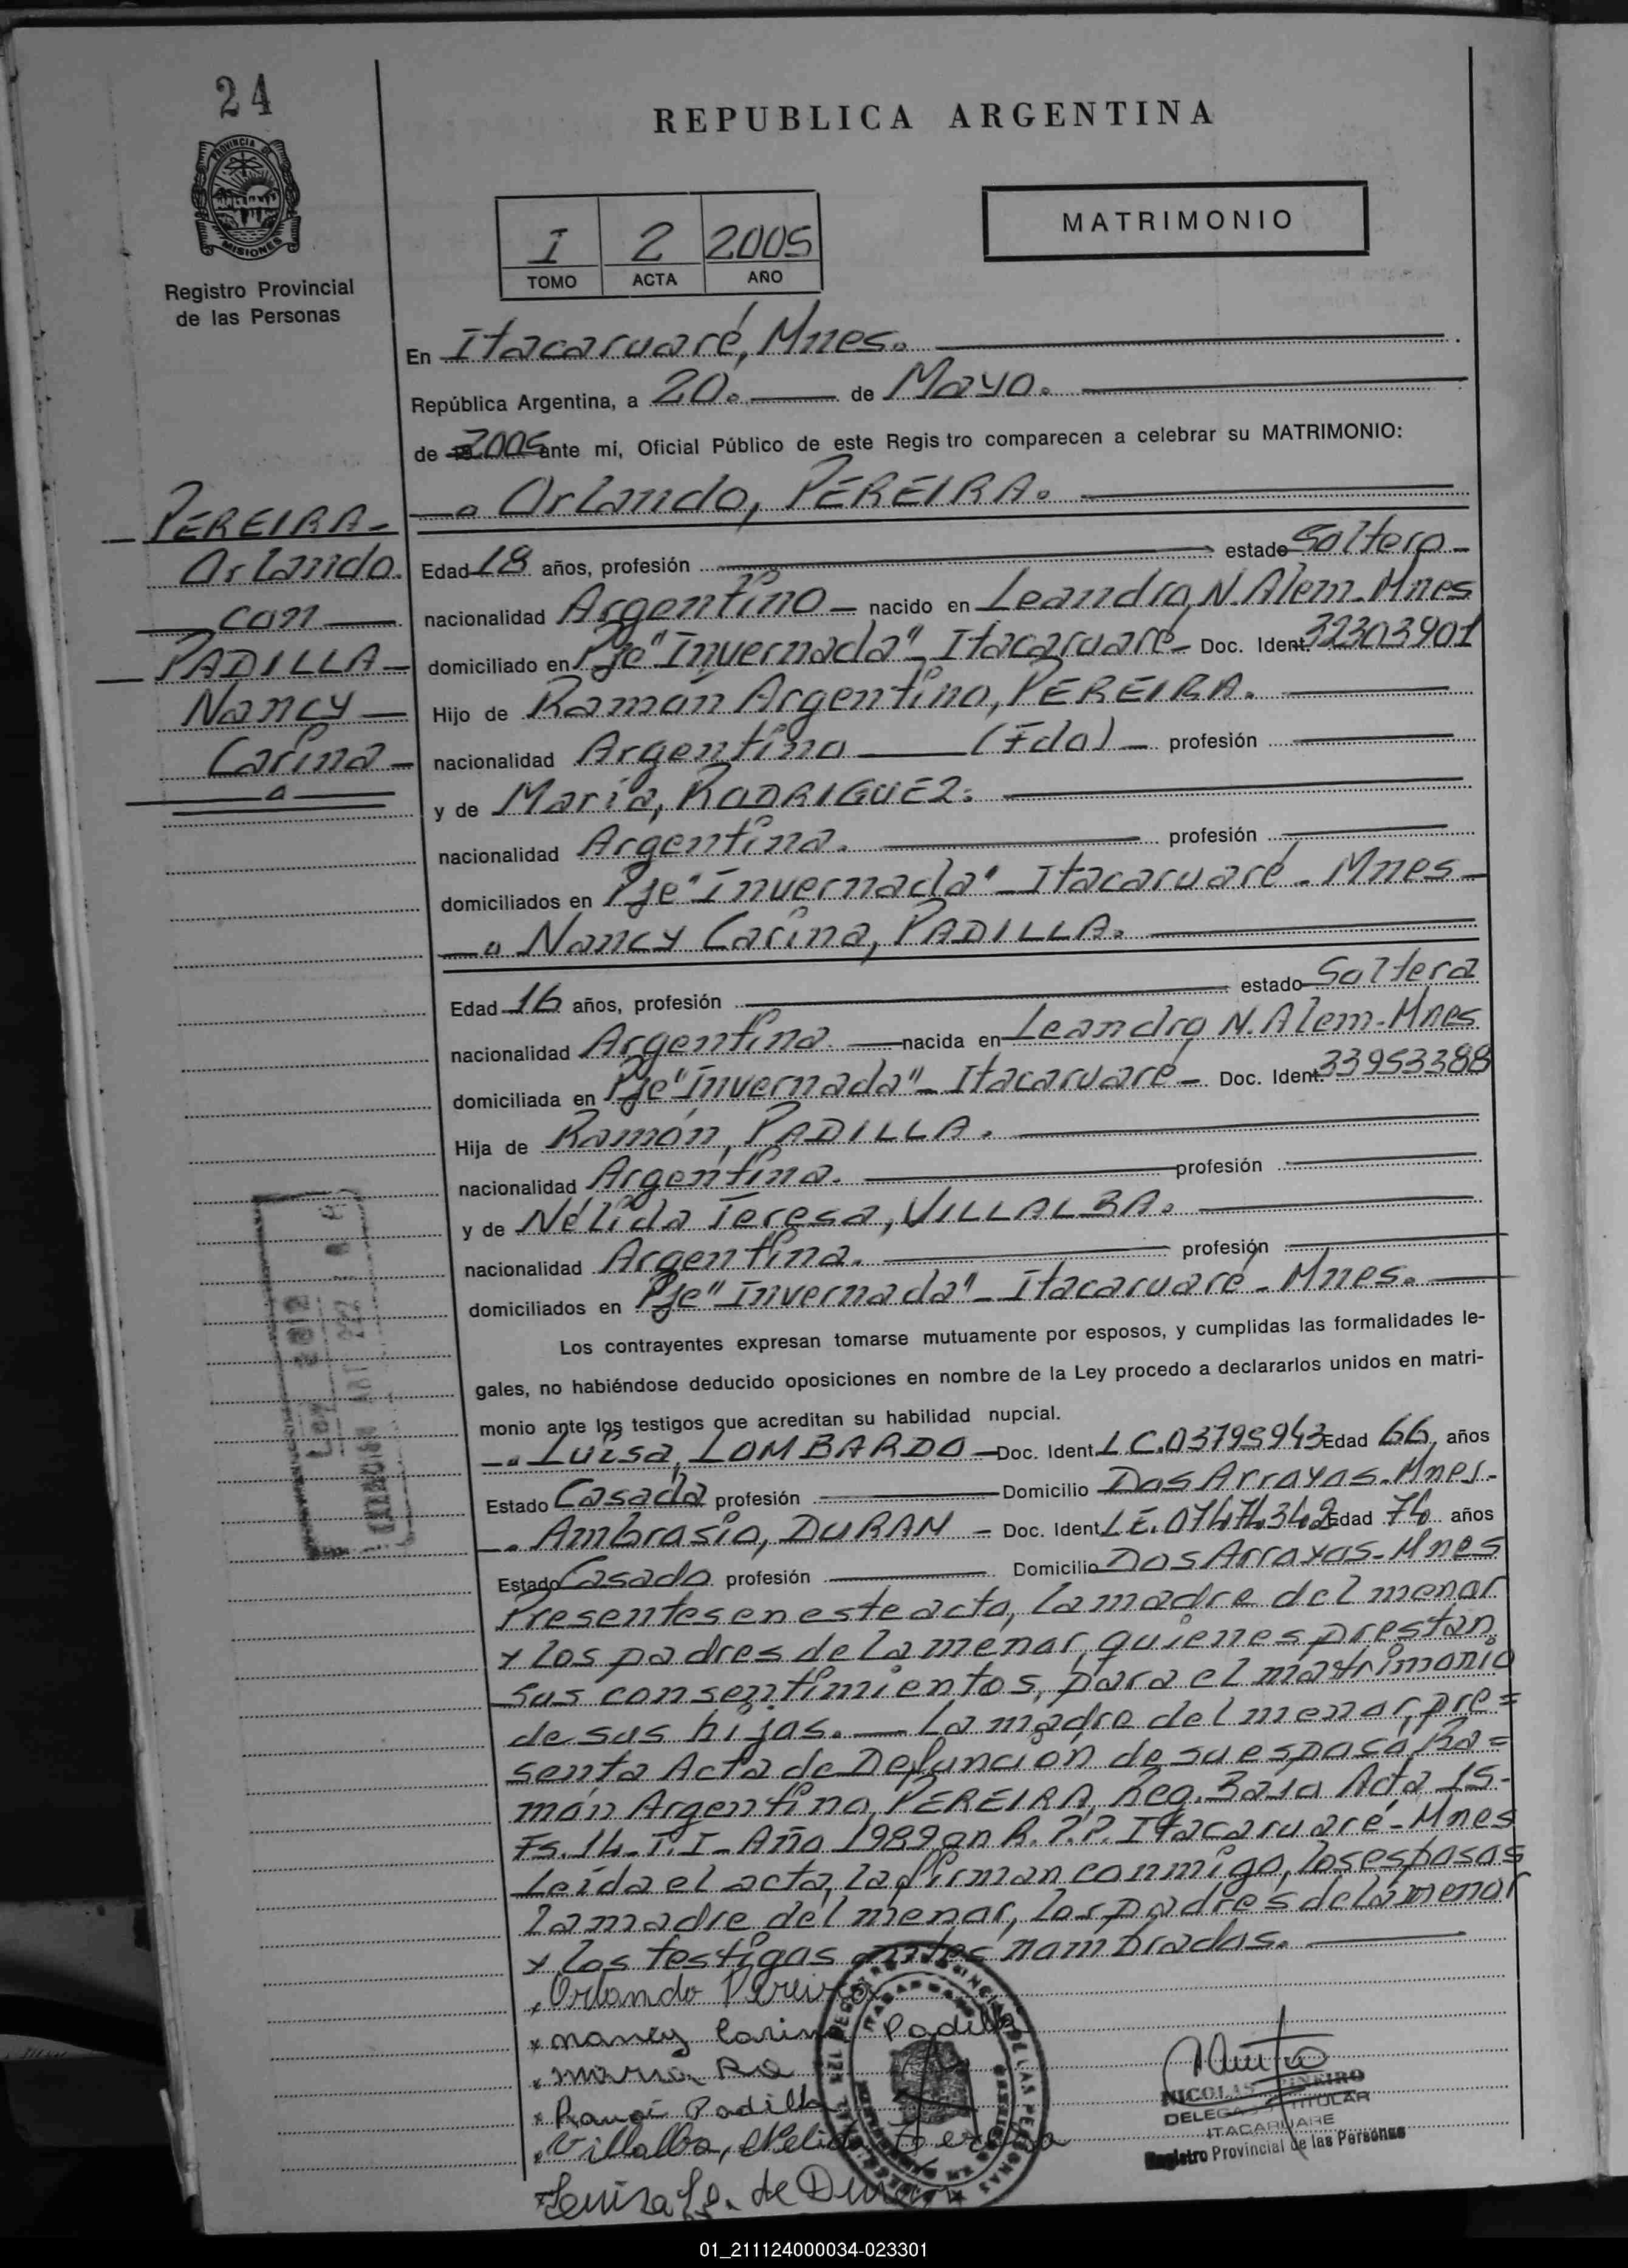 24
REPUBLICA ARGENTINA
PROVINCIA DE
MISIONES
MATRIMONIO
I 2 2005
TOMO ACTA AÑO
Registro Provincial
de las Personas
En Itacaruaré, Mnes.
República Argentina, a 20. de Mayo.
de 2005 ante mí, Oficial Público de este Regis tro comparecen a celebrar su MATRIMONIO:
Orlando, PEREIRA.
PEREIRA
Orlando.
con
PADILLA
Nancy
Carina
Edad 18 años, profesión estado Soltero
nacionalidad Argentino nacido en Leandro, N. Alem. Mnes
domiciliado en Pje "Invernada" Itacaruaré Doc. Ident. 32303901
Hijo de Ramón Argentino, PEREIRA.
nacionalidad Argentino (Fdo) profesión
y de María, RODRIGUEZ.
nacionalidad Argentina. profesión
domiciliados en Pje "Invernada" Itacaruaré. Mnes
Nancy Carina, PADILLA.
Edad 16 años, profesión estado Soltera
nacionalidad Argentina. nacida en Leandro N. Alem. Mnes
domiciliada en Pje "Invernada" Itacaruaré Doc. Ident. 33953388
Hija de Ramón, PADILLA.
nacionalidad Argentina. profesión
y de Nélida Teresa, VILLALBA.
nacionalidad Argentina. profesión
domiciliados en Pje "Invernada" Itacaruaré Mnes.
Los contrayentes expresan tomarse mutuamente por esposos, y cumplidas las formalidades le-
gales, no habiéndose deducido oposiciones en nombre de la Ley procedo a declararlos unidos en matri-
monio ante los testigos que acreditan su habilidad nupcial.
Luisa, LOMBARDO Doc. Ident. LC. 03795943 Edad 66 años
Estado Casada profesión Domicilio Dos Arroyos. Mnes.
Ambrosio, DURAN Doc. Ident. LE. 07474342 Edad 74 años
Estado Casado profesión Domicilio Dos Arroyos. Mnes
Presentes en este acto, la madre del menor
y los padres de la menor, quienes prestan
sus consentimientos, para el matrimonio
de sus hijos. La madre del menor, pre=
senta Acta de Defunción de su esposo, Ra=
món Argentino, PEREIRA, Reg. Bajo Acta 15-
Fs. 14. T. I - Año 1989 en R. P. P. Itacaruaré-Mnes
Leída el acta, la firman conmigo, los esposos
la madre del menor, los padres de la menor
y los testigos antes nombrados.
Orlando Pereira
Nancy Carina Padilla
Maria Ro
Ramon Padilla
Villalba, Nelida Teresa
Luisa L. de Duran
NICOLAS PINEIRO
DELEGADO TITULAR
ITACARUARE
Registro Provincial de las Personas
01_211124000034-023301